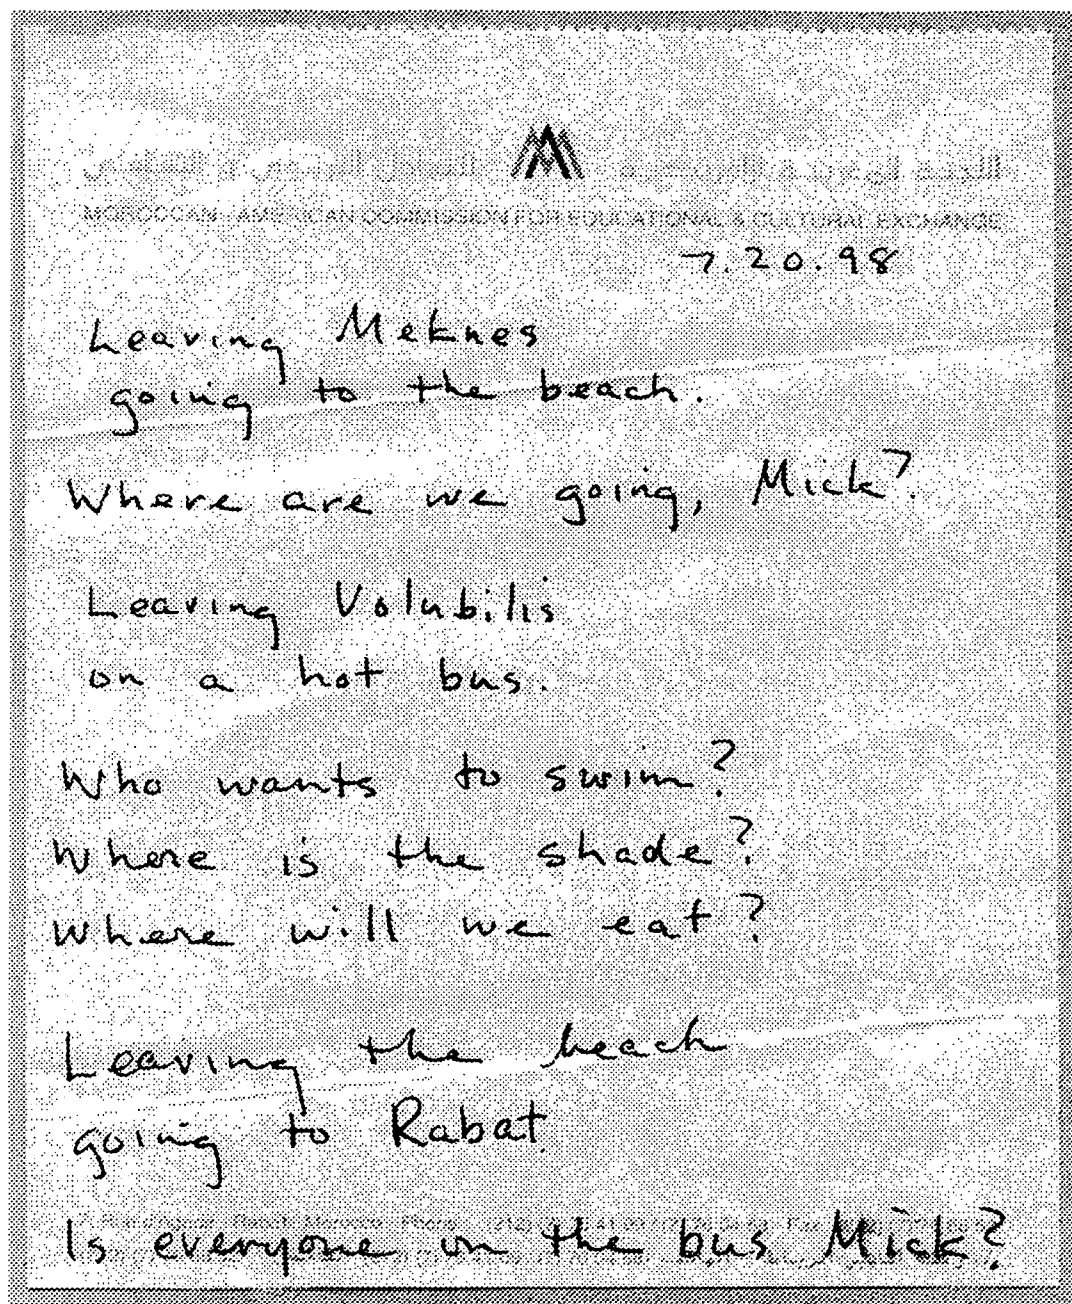 MOROCCAN-AMERICAN COMMISSION FOR EDUCATIONAL & CULTURAL EXCHANGE
7.20.98
Leaving Meknes
going to the beach.
Where are we going, Mick?
Leaving Volubilis
on a hot bus.
Who wants to swim?
Where is the shade?
Where will we eat?
Leaving the beach
going to Rabat.
Is everyone on the bus Mick?